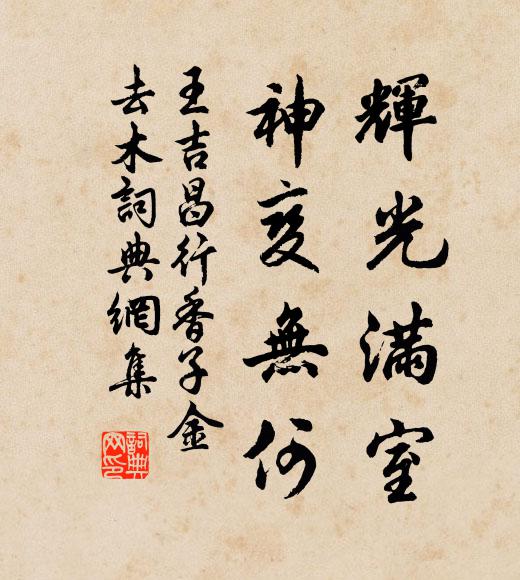 輝光滿室
神变無何
王吉昌行香子金
去木詞典網集
詞典网印